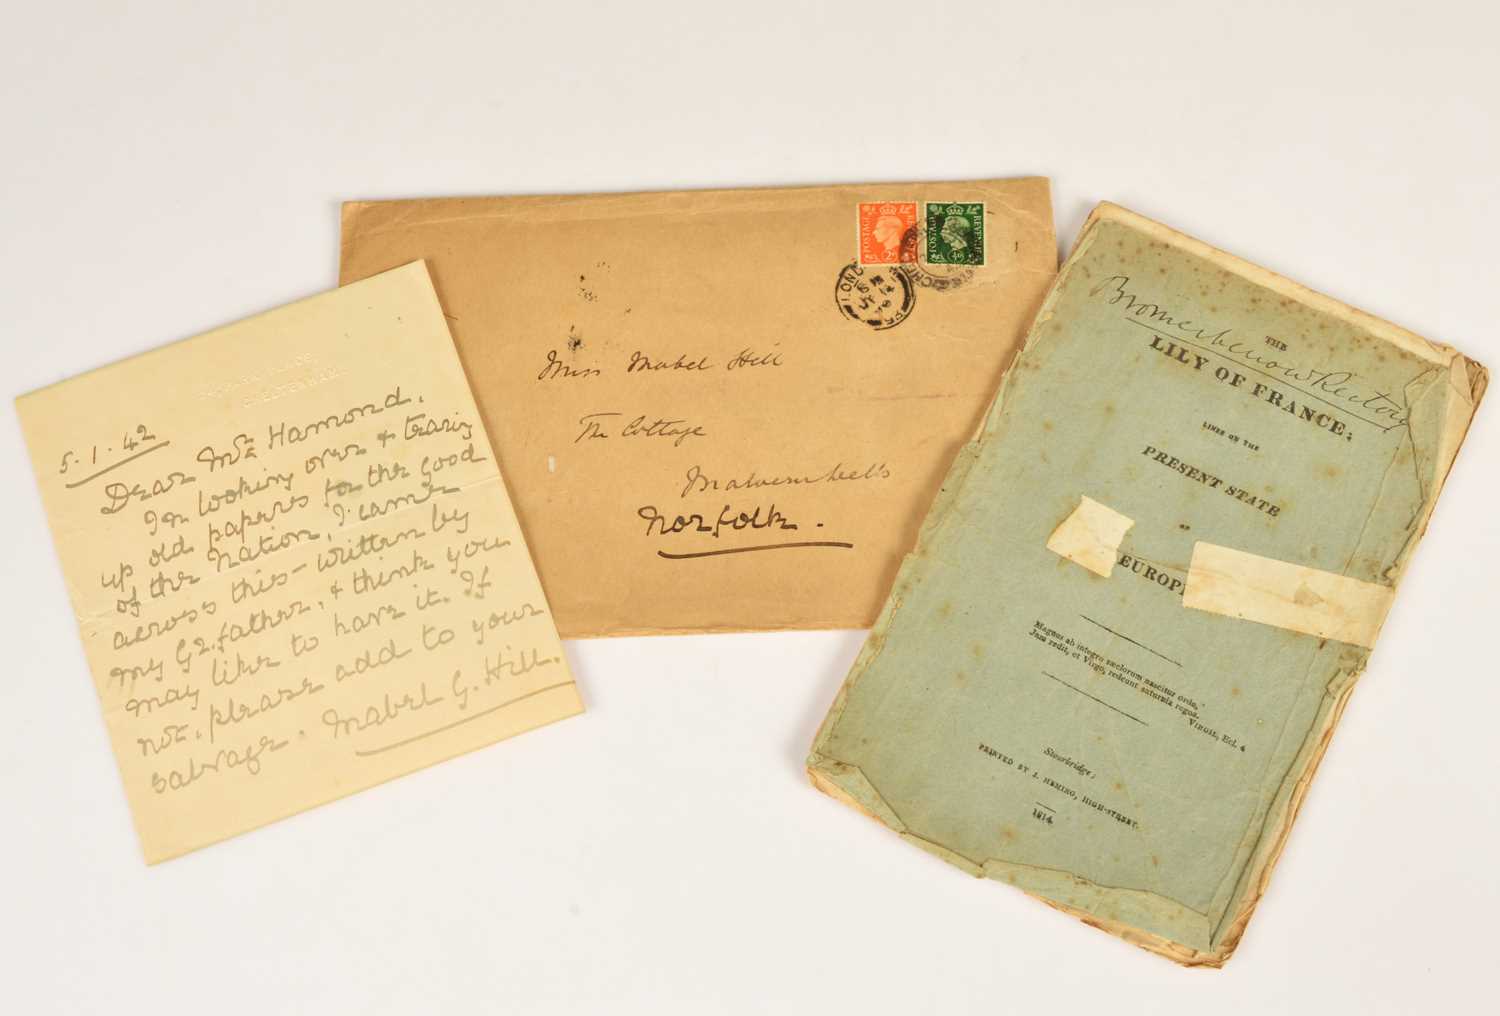 CHELTENHAM.
5.1.42
Dear Mrs Hamond,
I'm looking over & tearing
up old papers for the good
of the Nation, I came
across this - written by
my Gr. father, & think you
may like to have it. If
not, please add to your
salvage. Mabel G. Hill.
POSTAGE REVENUE
2D
POSTAGE REVENUE
½D
LONDON
Miss Mabel Hill
The Cottage
Malvern Wells
Norfolk.
Bromesberrow Rectory
THE
LILY OF FRANCE;
LINES ON THE
PRESENT STATE
OF
EUROP
Magnus ab integro sæclorum nascitur ordo,
Jam redit, et Virgo, redeunt saturnia regna.
VIRGIL, Ecl. 4
Stourbridge;
PRINTED BY J. HEMING, HIGH-STREET.
1814